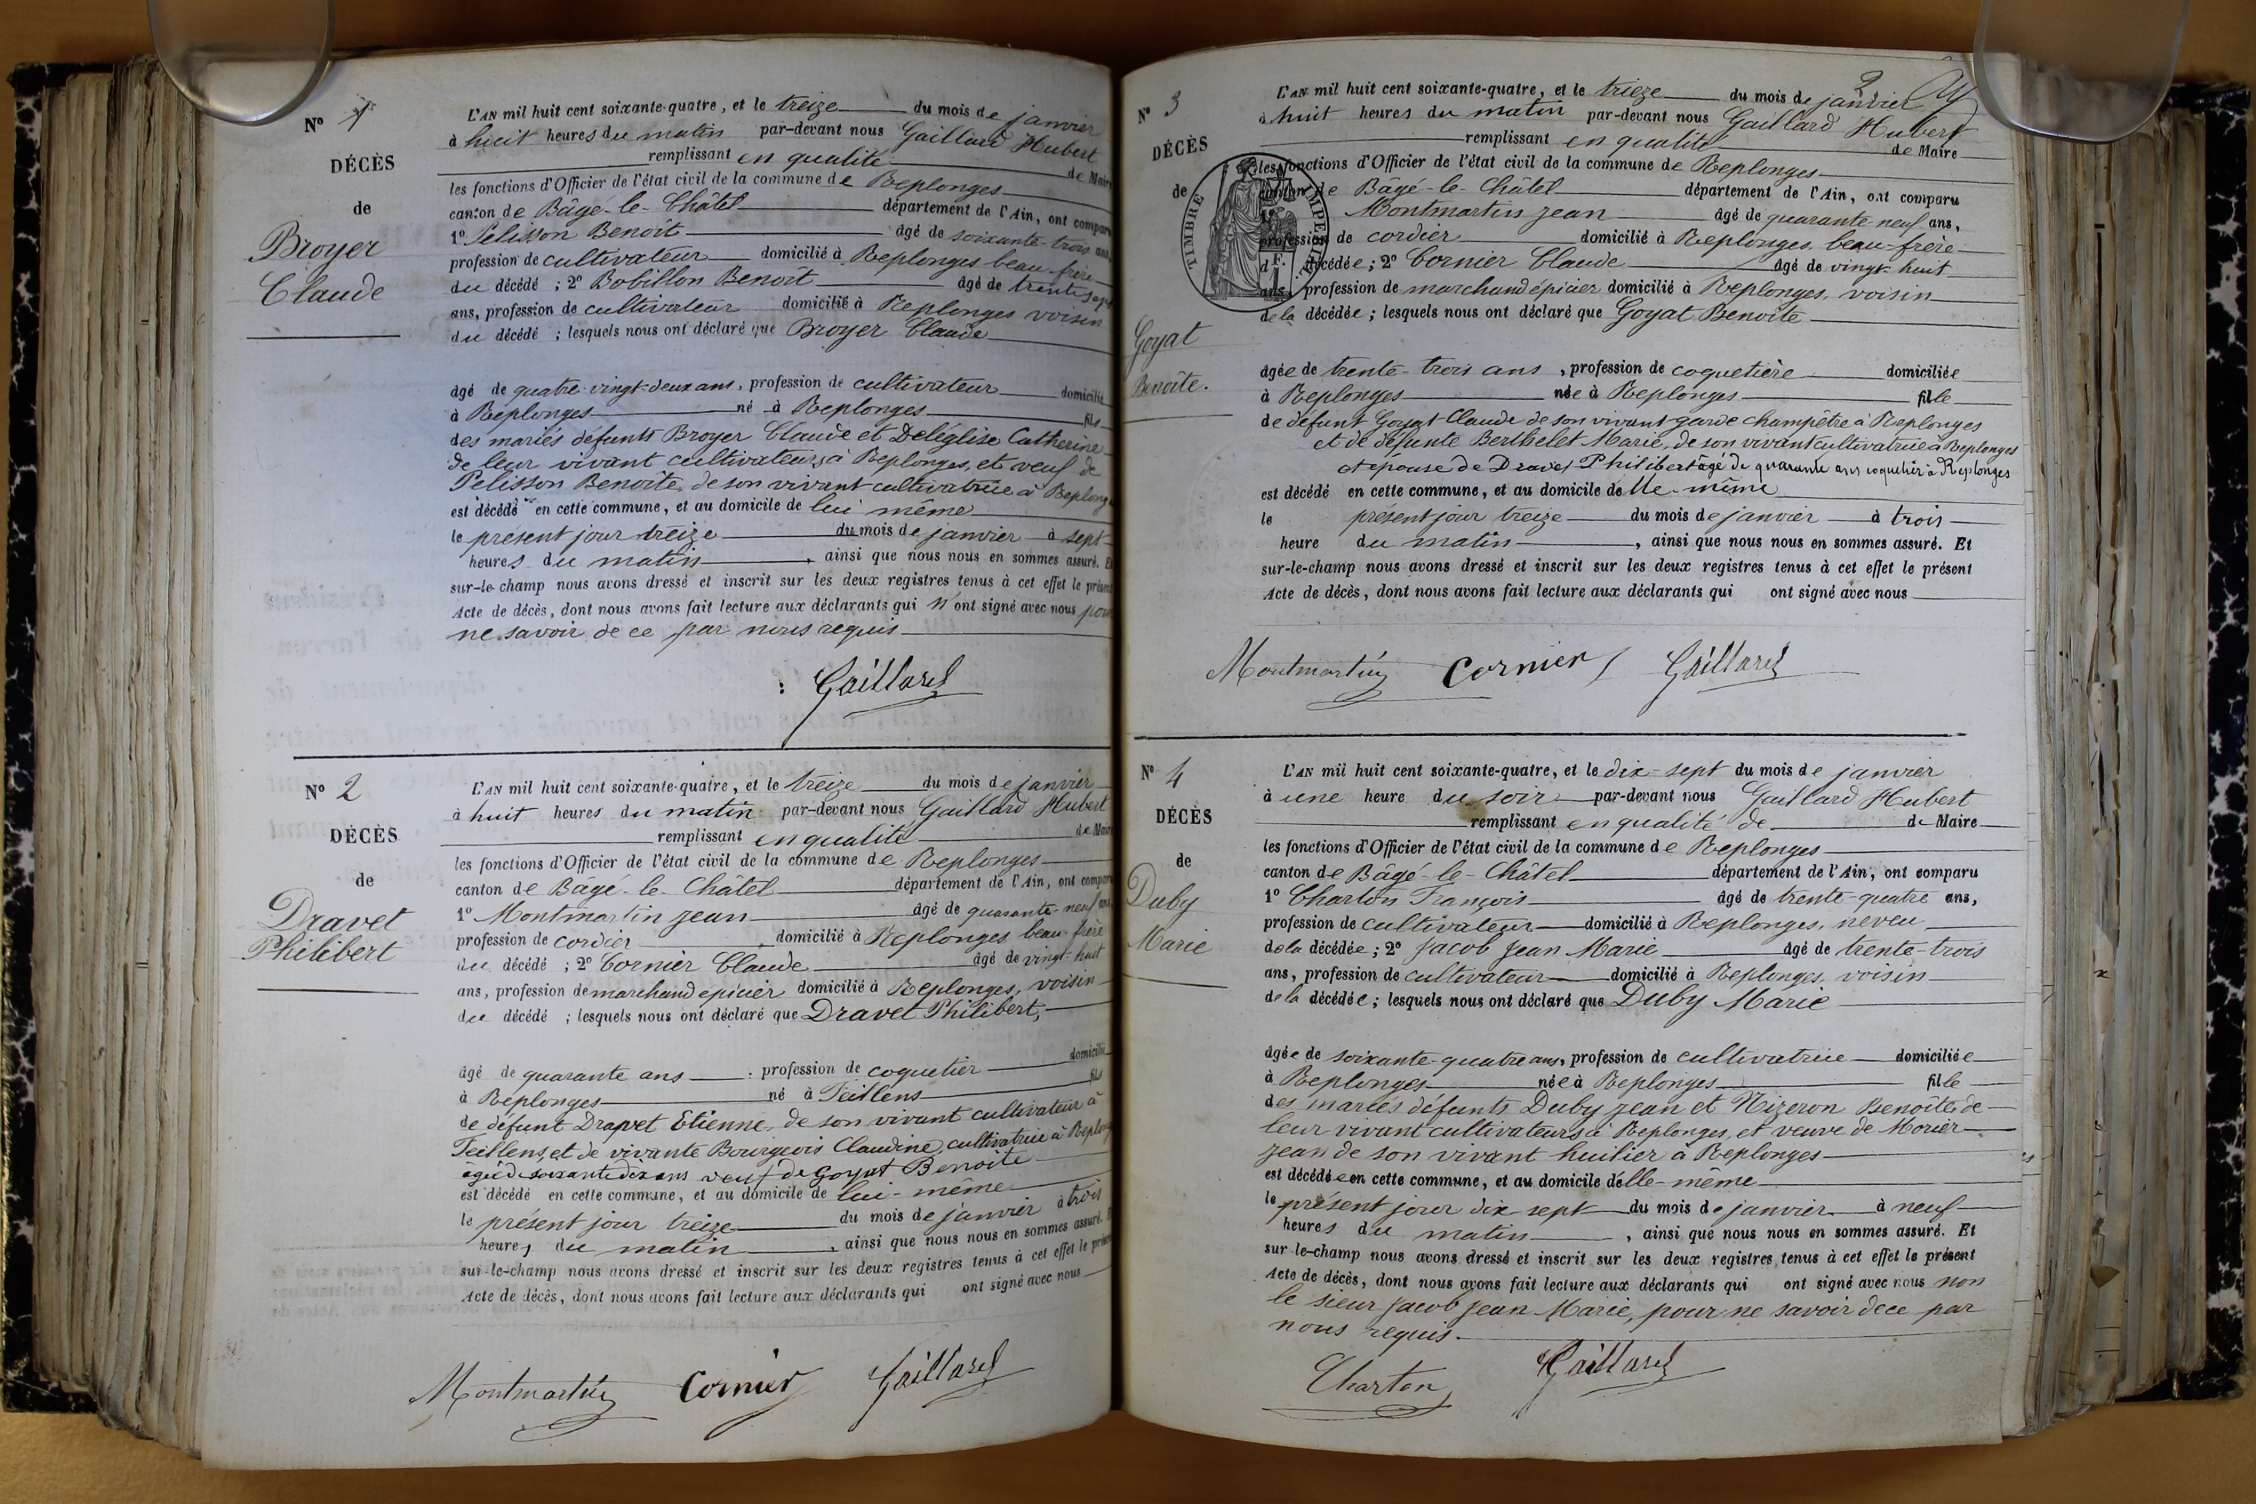 N° 1
DÉCÈS
de
Broyer
Claude
L'AN mil huit cent soixante-quatre, et le treize du mois de janvier
à huit heures du matin par-devant nous Gaillard Hubert
remplissant en qualité de Maire
les fonctions d'Officier de l'état civil de la commune de Replonges
canton de Bâgé-le-Châtel département de l'Ain, ont comparu
1° Pelisson Benoit âgé de soixante-trois ans,
profession de cultivateur domicilié à Replonges beau-frère
du décédé ; 2° Bobillon Benoit âgé de trente sept
ans, profession de cultivateur domicilié à Replonges voisin
du décédé ; lesquels nous ont déclaré que Broyer Claude
âgé de quatre-vingt-deux ans, profession de cultivateur domicilié
à Replonges né à Replonges fils
des mariés défunts Broyer Claude et Deléglise Catherine
de leur vivant cultivateurs à Replonges, et veuf de
Pelisson Benoite de son vivant cultivatrice à Replonges
est décédé en cette commune, et au domicile de lui même
le présent jour treize du mois de janvier à sept
heures du matin, ainsi que nous nous en sommes assuré. Et
sur-le-champ nous avons dressé et inscrit sur les deux registres tenus à cet effet le présent
Acte de décès, dont nous avons fait lecture aux déclarants qui n'ont signé avec nous pour
ne savoir de ce par nous requis
Gaillard
N° 2
DÉCÈS
de
Dravet
Philibert
L'AN mil huit cent soixante-quatre, et le treize du mois de janvier
à huit heures du matin par-devant nous Gaillard Hubert
remplissant en qualité de Maire
les fonctions d'Officier de l'état civil de la commune de Replonges
canton de Bâgé-le-Châtel département de l'Ain, ont comparu
1° Montmartin Jean âgé de quarante-neuf ans,
profession de cordier domicilié à Replonges beau-frère
du décédé ; 2° Cornier Claude âgé de vingt-huit
ans, profession de marchand épicier domicilié à Replonges, voisin
du décédé ; lesquels nous ont déclaré que Dravet Philibert,
âgé de quarante ans profession de coquetier domicilié
à Replonges né à Feillens fils
de défunt Dravet Etienne de son vivant cultivateur à
Feillens, et de vivante Bourgeois Claudine, cultivatrice à Replonges
âgée de soixante dix ans veuf de Goyat Benoite
est décédé en cette commune, et au domicile de lui-même
le présent jour treize du mois de janvier à trois
heures du matin, ainsi que nous nous en sommes assuré. Et
sur-le-champ nous avons dressé et inscrit sur les deux registres tenus à cet effet le présent
Acte de décès, dont nous avons fait lecture aux déclarants qui ont signé avec nous
Montmartin Cornier Gaillard
2
N° 3
DÉCÈS
de
Goyat
Benoîte.
TIMBRE IMPERIAL
F.
L'AN mil huit cent soixante-quatre, et le trieze du mois de janvier
à huit heures du matin par-devant nous Gaillard Hubert
remplissant en qualité de Maire
les fonctions d'Officier de l'état civil de la commune de Replonges
canton de Bâgé-le-Châtel département de l'Ain, ont comparu
Montmartin Jean âgé de quarante-neuf ans,
profession de cordier domicilié à Replonges, beau-frère
décédée ; 2° Cornier Claude âgé de vingt-huit
ans, profession de marchand épicier domicilié à Replonges, voisin
de la décédée ; lesquels nous ont déclaré que Goyat Benoîte
âgée de trente-trois ans, profession de coquetière domiciliée
à Replonges née à Replonges fille
de défunt Goyat Claude de son vivant garde champêtre à Replonges
et de défunte Berthelet Marie, de son vivant cultivatrice à Replonges
et épouse de Dravet Philibert âgé de quarante ans coquetier à Replonges
est décédé en cette commune, et au domicile de lle-même
le présent jour treize du mois de janvier à trois
heure du matin, ainsi que nous nous en sommes assuré. Et
sur-le-champ nous avons dressé et inscrit sur les deux registres tenus à cet effet le présent
Acte de décès, dont nous avons fait lecture aux déclarants qui ont signé avec nous
Montmartin Cornier Gaillard
N° 4
DÉCÈS
de
Duby
Marie
L'AN mil huit cent soixante-quatre, et le dix-sept du mois de janvier
à une heure du soir par-devant nous Gaillard Hubert
remplissant en qualité de de Maire
les fonctions d'Officier de l'état civil de la commune de Replonges
canton de Bâgé-le-Châtel département de l'Ain, ont comparu
1° Charton François âgé de trente-quatre ans,
profession de cultivateur domicilié à Replonges, neveu
de la décédée ; 2° Jacob Jean Marie âgé de trente-trois
ans, profession de cultivateur domicilié à Replonges, voisin
de la décédée ; lesquels nous ont déclaré que Duby Marie
âgée de soixante-quatre ans, profession de cultivatrice domiciliée
à Replonges née à Replonges fille
des mariés défunts Duby Jean et Nizeron Benoîte de
leur vivant cultivateurs à Replonges, et veuve de Morier
Jean de son vivant huilier à Replonges
est décédée en cette commune, et au domicile d'elle-même
le présent jour dix-sept du mois de janvier à neuf
heures du matin, ainsi que nous nous en sommes assuré. Et
sur-le-champ nous avons dressé et inscrit sur les deux registres tenus à cet effet le présent
Acte de décès, dont nous avons fait lecture aux déclarants qui ont signé avec nous non
le sieur Jacob Jean Marie, pour ne savoir de ce par
nous requis.
Charton Gaillard